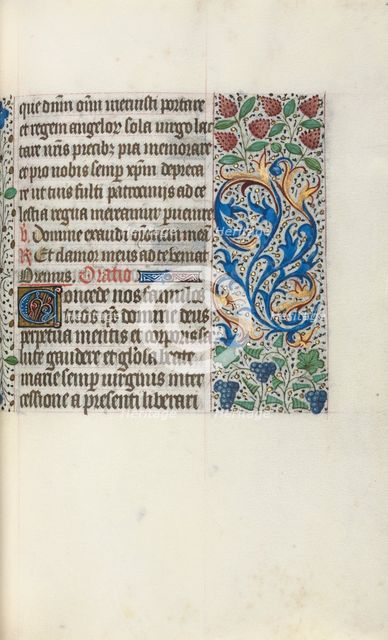 que dnm om̅ meruisti portare
et regem angelor sola virgo lac
tare nr̅is precib pia memorare
et pro nobis semp xpm depreca
re ut tuis fulti patrocinijs ad ce
lestia regna mereamur puenire
V. Domine exaudi or̅onem mea̅
R Et clamor meus ad te veniat
Oremus. Oratio
Concede nos famulos
tuos qs domine deus
perpetua mentis et corporis sa
lute gaudere et gl̅osa beate
marie semp virginis inter
cessione a presenti liberari
Heritage